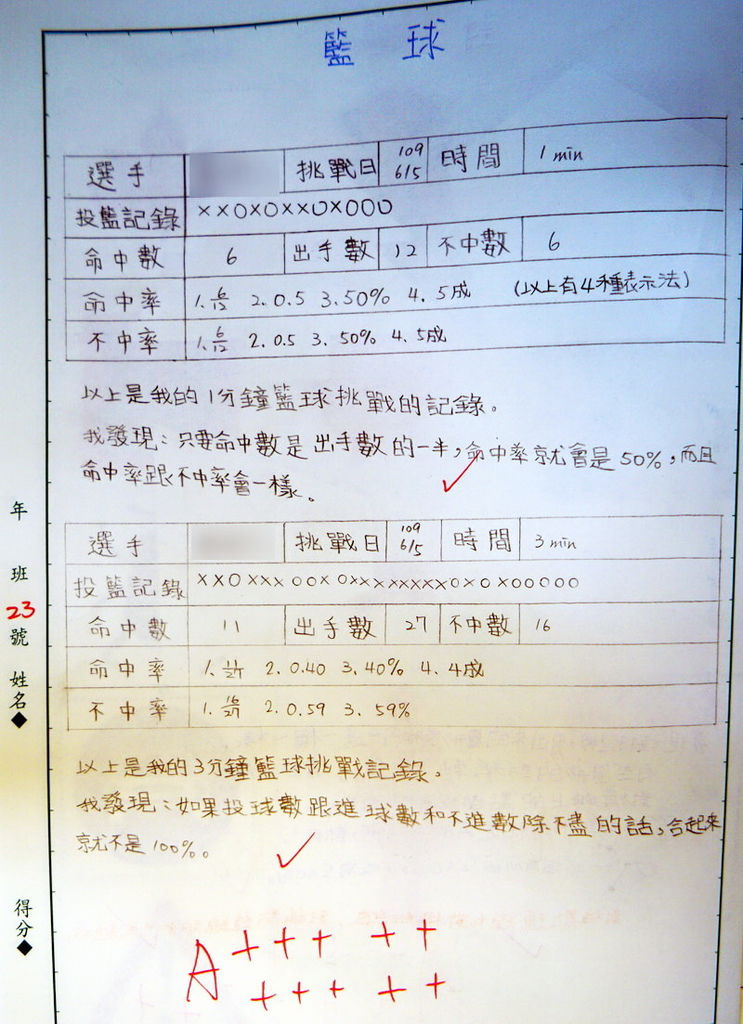 籃 球
選手 挑戰日 109 6/5 時間 1 min
投籃記錄 ××○×○××○×○○○
命中數 6 出手數 12 不中數 6
命中率 1. 6/12 2. 0.5 3. 50% 4. 5成 (以上有4種表示法)
不中率 1. 6/12 2. 0.5 3. 50% 4. 5成
以上是我的1分鐘籃球挑戰的記錄。
我發現：只要命中數是出手數的一半，命中率就會是50%，而且
命中率跟不中率會一樣。
選手 挑戰日 109 6/5 時間 3 min
投籃記錄 ××○×××○○×○××××××××○×○×○○○○○
命中數 11 出手數 27 不中數 16
命中率 1. 11/27 2. 0.40 3. 40% 4. 4成
不中率 1. 16/27 2. 0.59 3. 59%
以上是我的3分鐘籃球挑戰記錄。
我發現：如果投球數跟進球數和不進數除不盡的話，合起來
就不是100%。
A+++ ++
+++ ++
年 班 23 號 姓名◆
得分◆